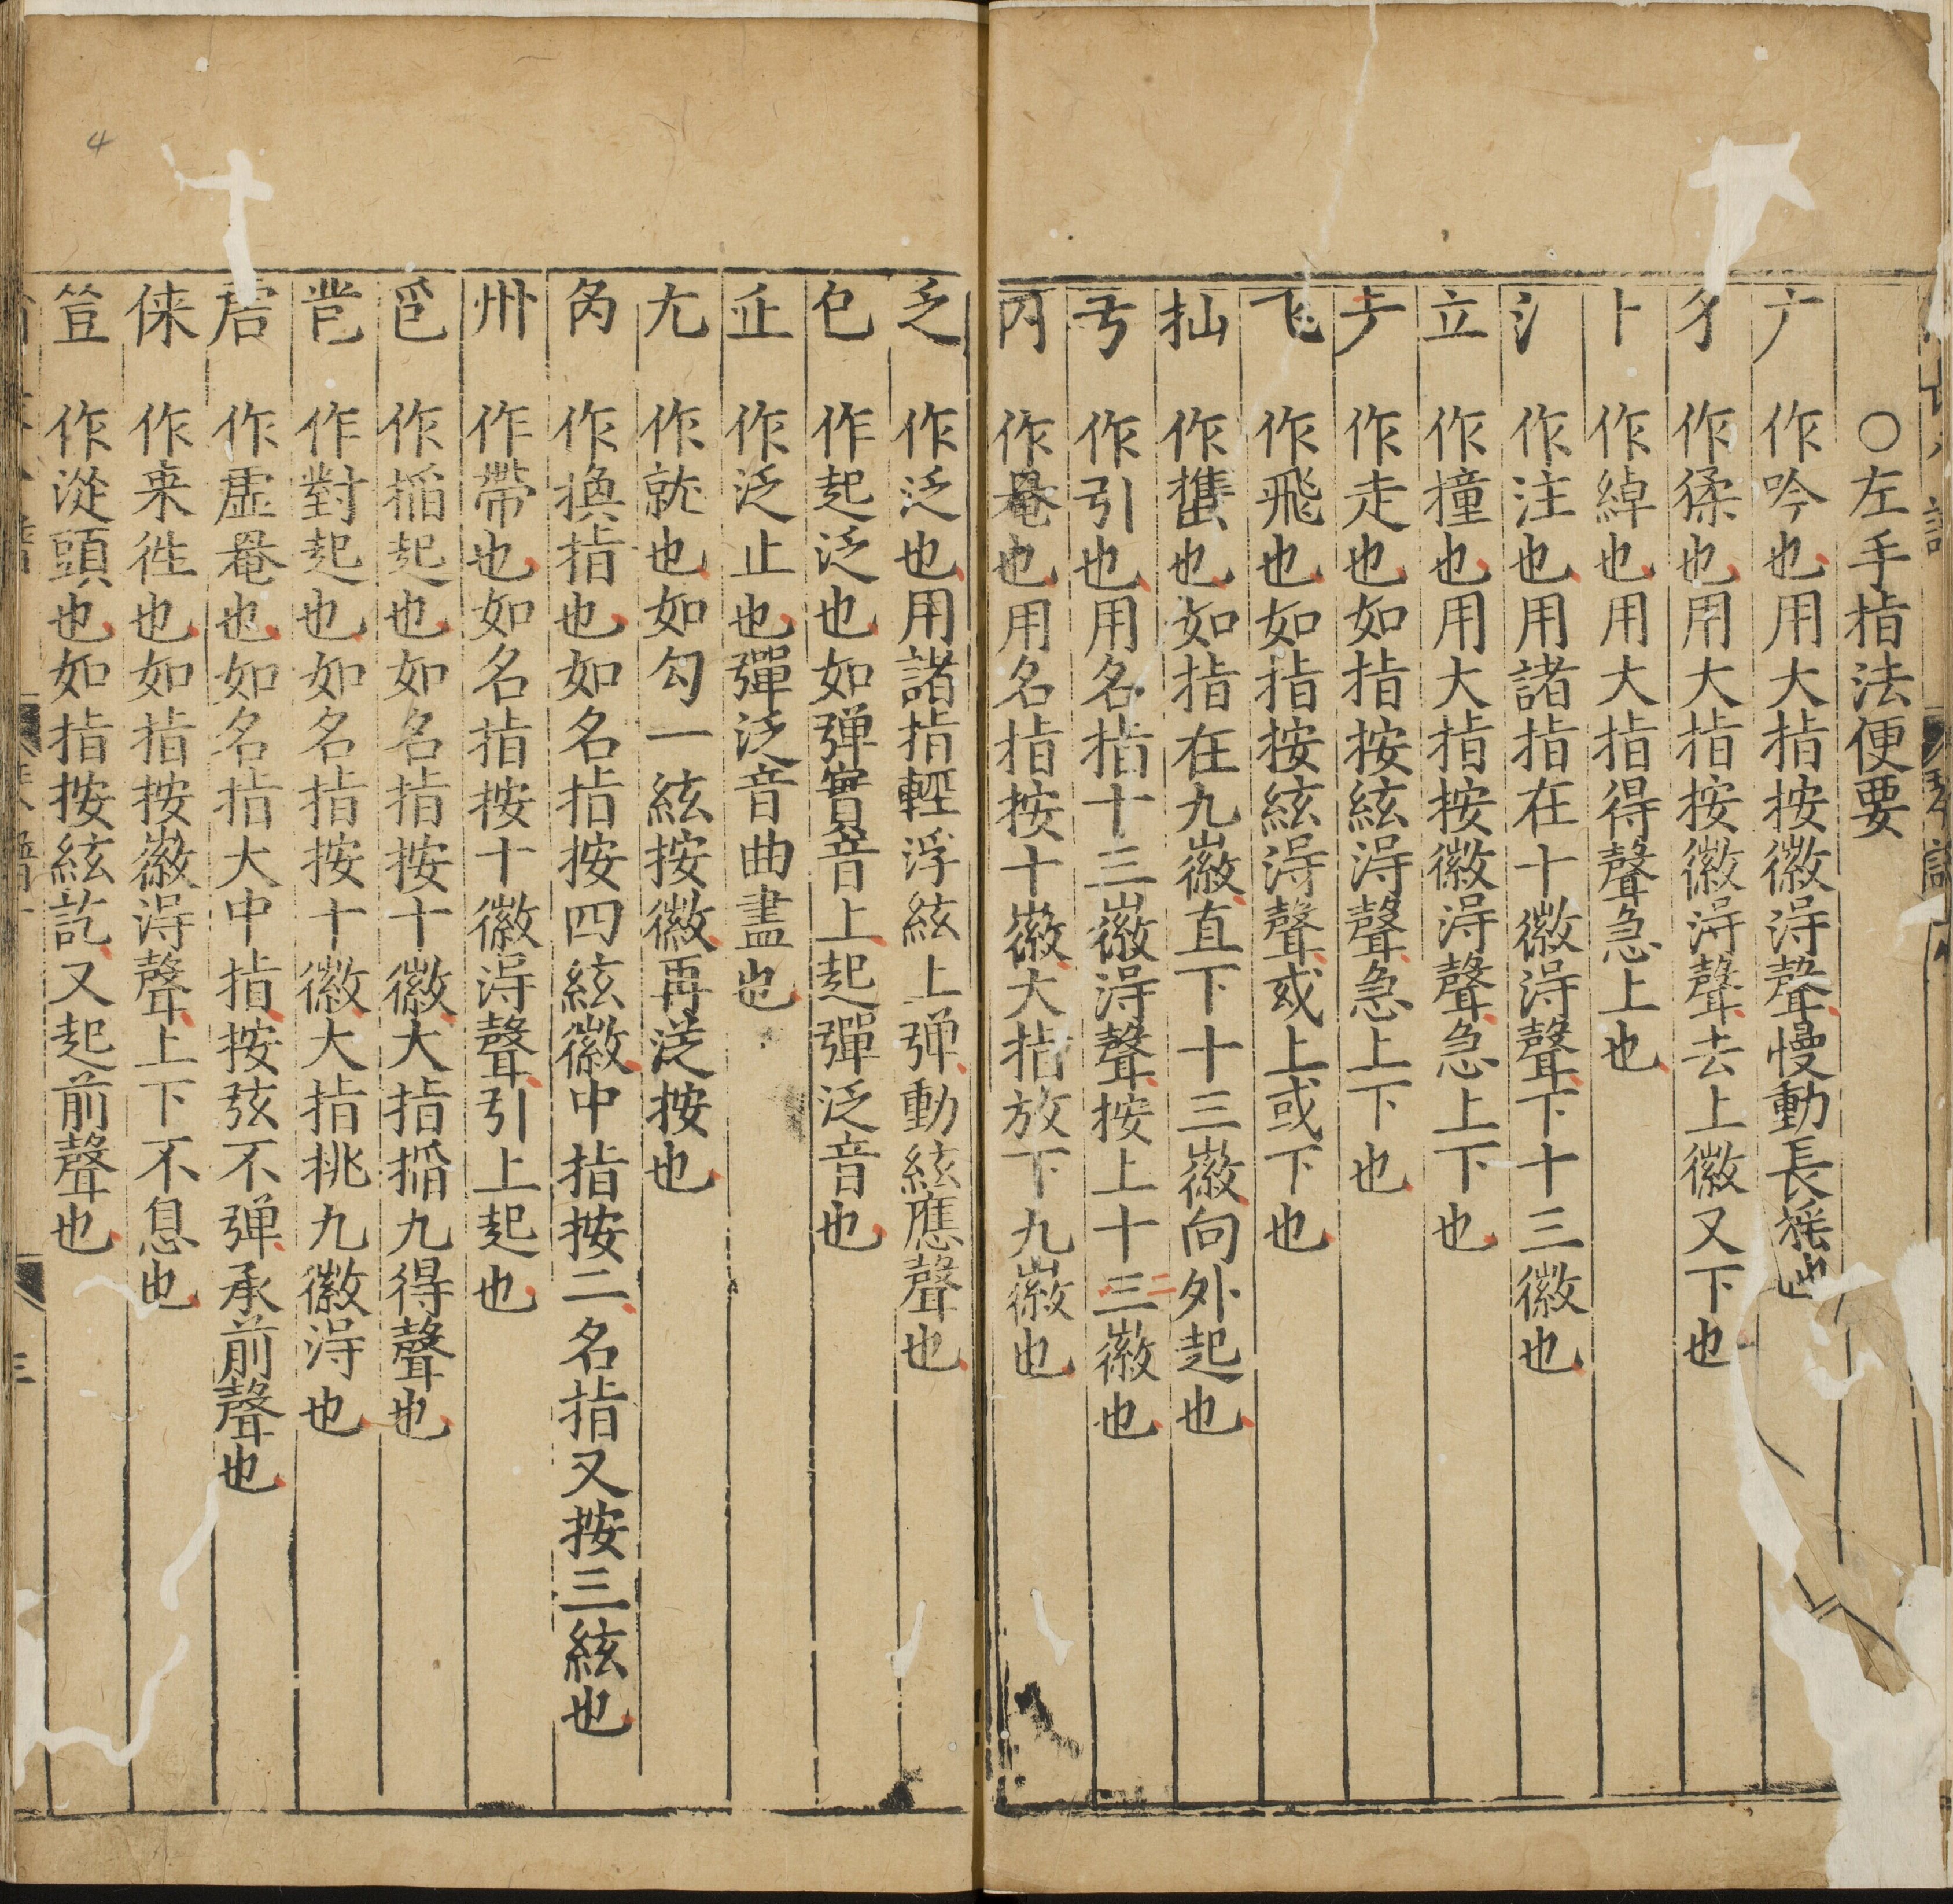 ○左手指法便要
亠 作吟也用大指按徽淂聲慢動長揺也
犭 作猱也用大指按徽淂聲去上徽又下也
卜 作綽也用大指得聲急上也
氵 作注也用諸指在十徽淂聲下十三徽也
立 作撞也用大指按徽淂聲急上下也
作走也如指按絃淂聲急上下也
飞 作飛也如指按絃淂聲或上或下也
作㩦也如指在九徽直下十三徽向外起也
作引也用名指十三徽淂聲按上十三徽也
作罨也用名指按十徽大指放下九徽也
乏 作泛也用諸指輕浮絃上弹動絃應聲也
作起泛也如弹實音上起彈泛音也
作泛止也彈泛音曲盡也
尢 作就也如勾一絃按徽再泛按也
作換指也如名指按四絃徽中指按二名指又按三絃也
作帶也如名指按十徽淂聲引上起也
作搯起也如名指按十徽大指搯九得聲也
作對起也如名指按十徽大指挑九徽淂也
作虛罨也如名指大中指按弦不弹承前聲也
倈 作来徃也如指按徽淂聲上下不息也
作從頭也如指按絃訖又起前聲也
三
4